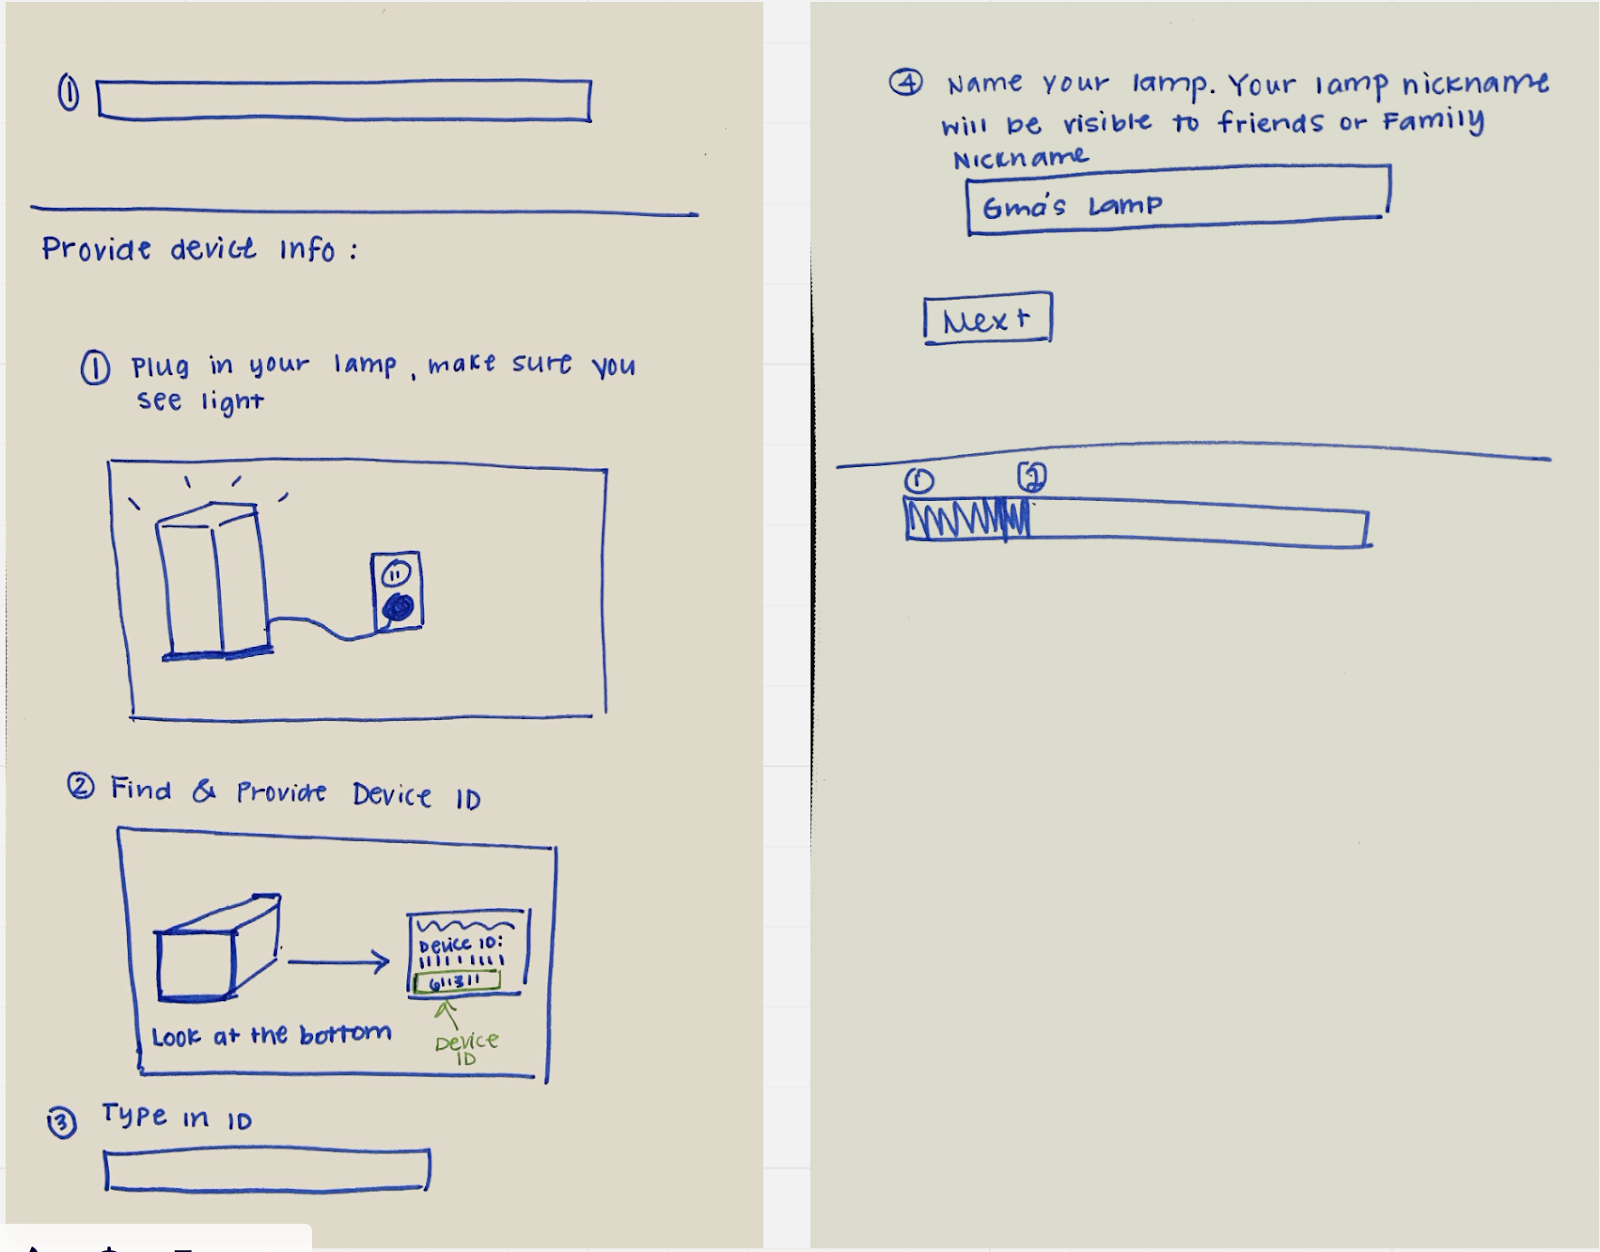 1
Provide device info:
1 Plug in your lamp, make sure you
see light
2 Find & Provide Device ID
Device ID:
611311
Look at the bottom
Device
ID
3 Type in ID
4 Name your lamp. Your lamp nickname
will be visible to friends or Family
Nickname
Gma's Lamp
Next
1 2